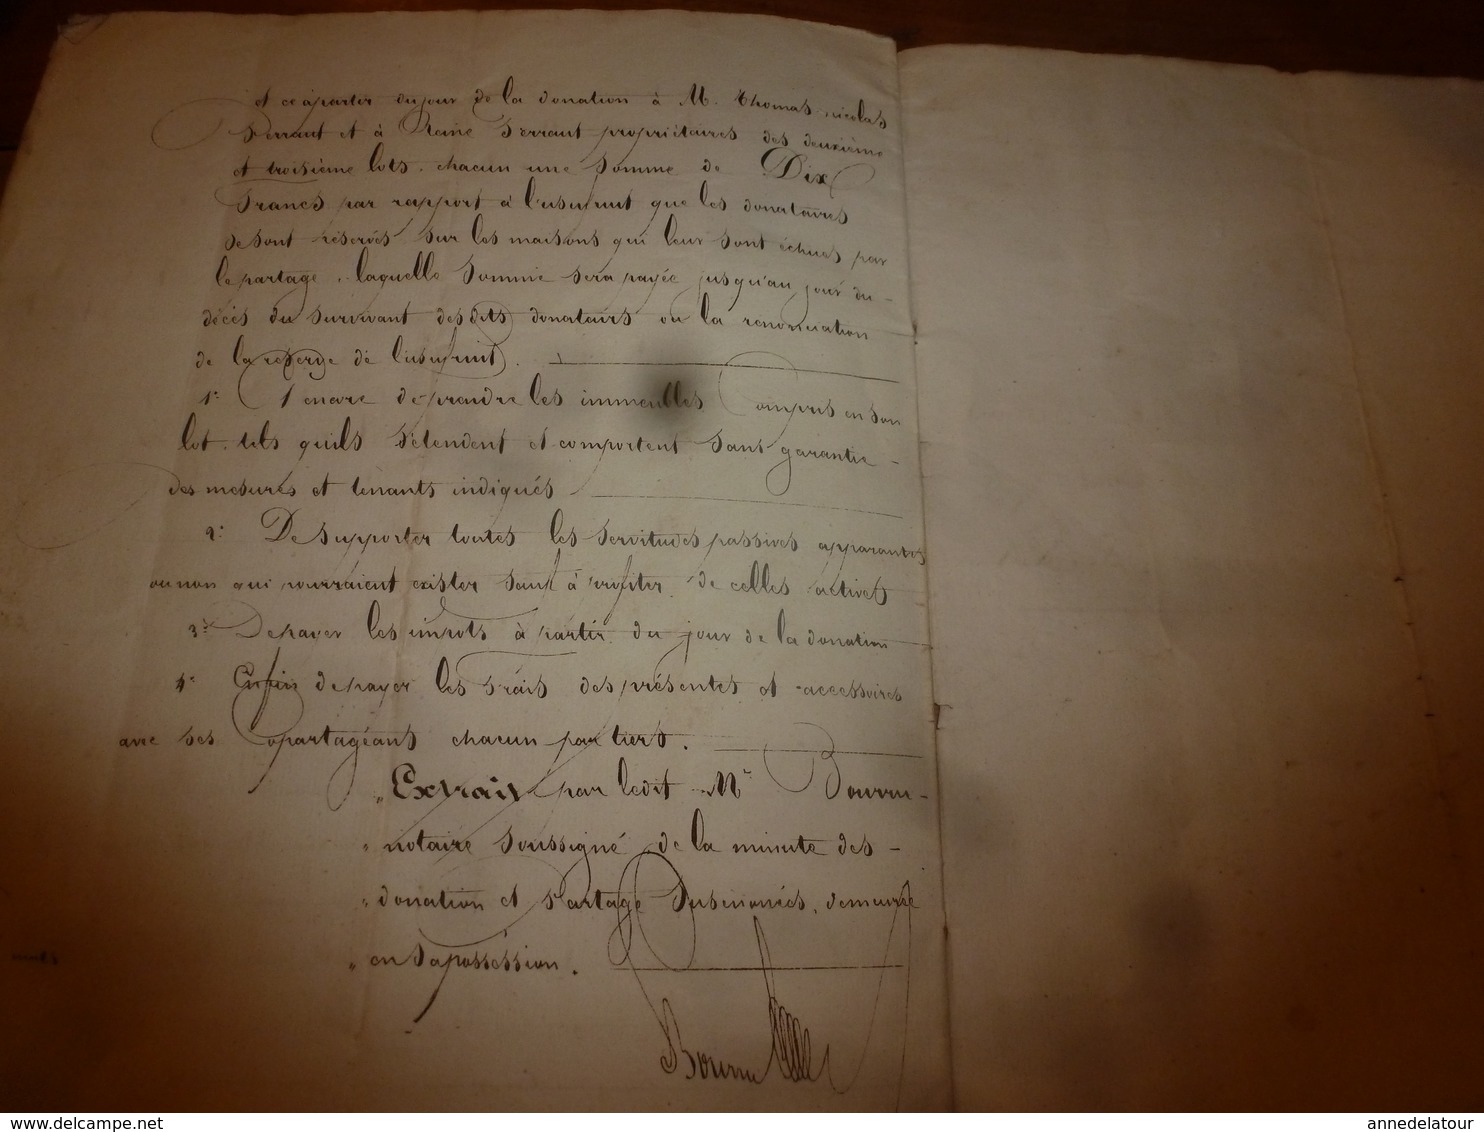 et ce à partir du jour de la donation à M. Thomas nicolas
Serrant et à Reine Serrant propriétaires des deuxième
et troisième lots. chacun une somme de Dix
francs par rapport à l'usufruit que les donataires
se sont réservés sur les maisons qui leur sont échues par
le partage, laquelle somme sera payée jusqu'au jour du
décès du survivant des dits donataires ou la renonciation
de la réserve de l'usufruit.
1° encore de prendre les immeubles Compris en son
lot, tels qu'ils s'étendent et comportent sans garantie
des mesures et tenants indiqués
2° De supporter toutes les servitudes passives apparantes
ou non qui pourraient exister sauf à profiter de celles actives
3° De payer les impôts à partir du jour de la donation
4° Enfin de payer les frais des présentes et accessoires
avec ses Copartagéans chacun par tiers.
"Extrait par ledit Me Bourru
"notaire soussigné de la minute des
"donation et Partage susénoncés, demeurée
"en sa possession.
Bourru
annedelatour